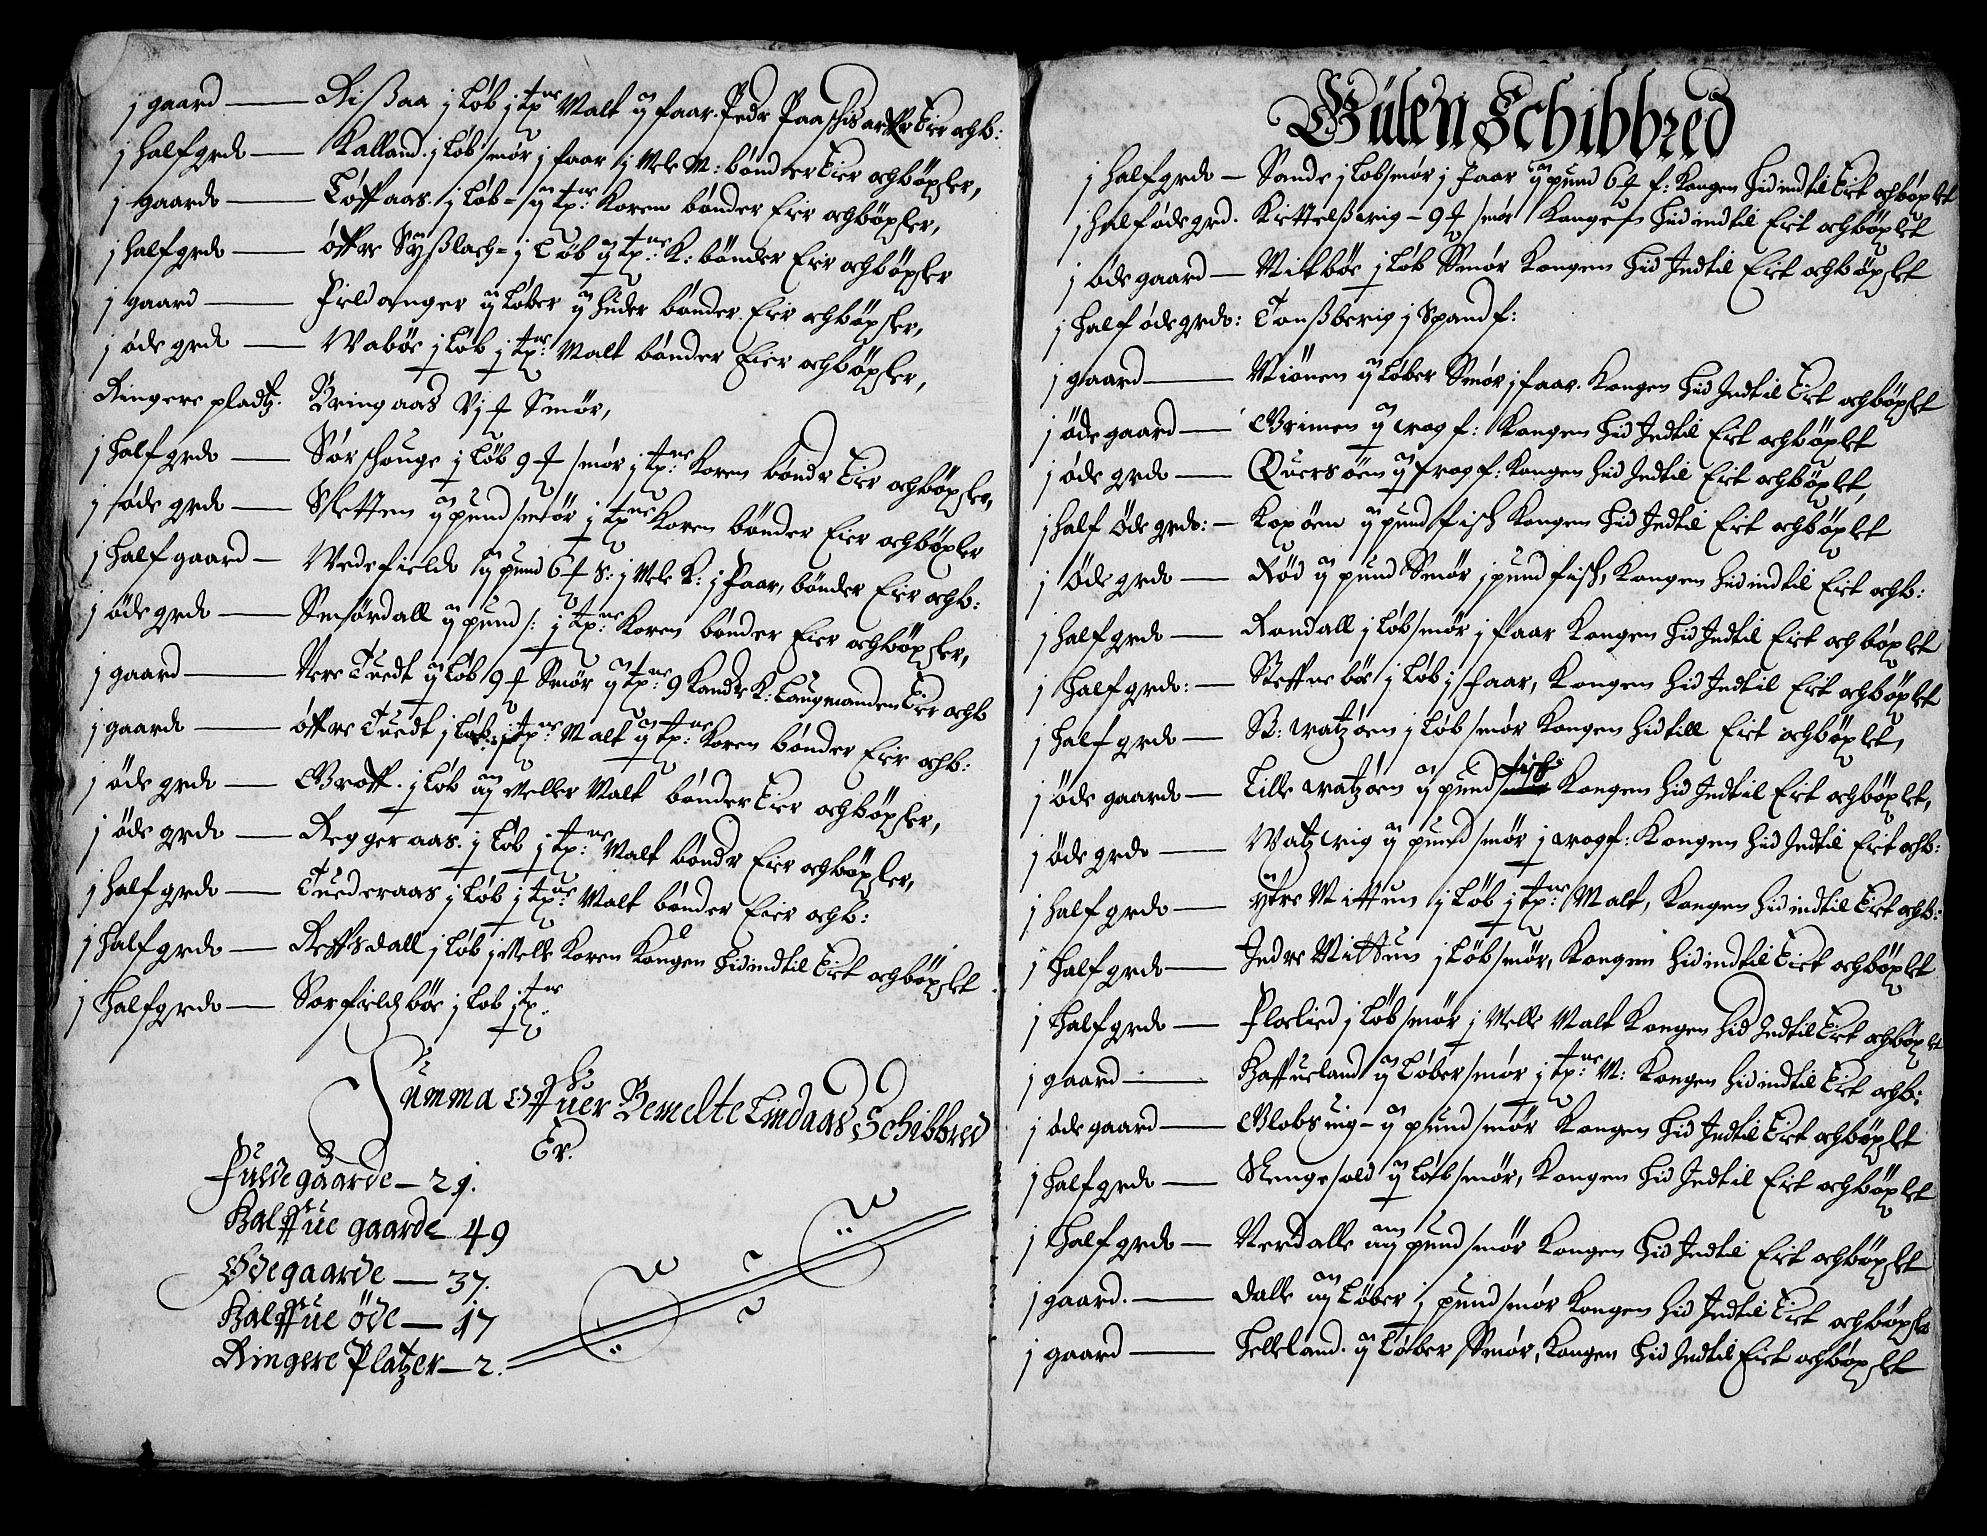 j gaard — Rißaa j Løb j tne Malt ij faar. Pedr Eier och b:
j halfgrd — Kalland. j Løb smør j faar j Mele M: bønder Eier och bøxler,
j gaard — Tøffaas. j Løb - ij tne: Koren bønder Eier och bøxler,
j halfgrd — öffre Syßlach = j Løb ij tne: K: bønder Eier och bøxler
j gaard — Fieldanger ij Løber ij huder bønder Eier och bøxler,
j øde grd — Wabøe j Løb j tne: Malt bønder Eier och bøxler,
Ringere pladtz. Bringaas Vj ℔ Smør,
j halfgrd — Sørschouge j Løb 9 ℔ smør j tne: Koren bøndr Eier och bøxler,
j øde grd — Sletten ij pund smør j tne Koren bønder Eier och bøxler
j halfgaard — Vedefields ij pund 6 ℔ S: j Mele K: j Faar, bønder Eier och b:
j øde grd — Smørdall ij pund s: j tne: Koren bønder Eier och bøxler,
j gaard — Nere Tuedt ij Løb 9 ℔ Smør ij tne: 9 Kandr K: Laugmanden Eier och b
j gaard — öffre Tuedt j Løb j tne: Malt ij tne: Koren bønder Eier och b:
j øde grd — Groff. j Løb iij Meller Malt bønder Eier och bøxler,
j øde grd — Reggeraas. j Løb j tne: Malt bøndr Eier och bøxler,
j halfgrd — Tuederaas j Løb j tne: Malt bønder Eier och b:
j halfgrd — Reffsdall j Løb j Melle Koren Kongen hid indtil Eiet och bøxlet
j halfgrd — Sorfieldzbøe j Løb j tne
Summa Offuer Bemelte Lindaas Schibbred
Er.
Fulde gaarde — 21.
Halffue gaarde — 49
Ødegaarde — 37.
Halffue öde — 17
Ringere Platzer — 2.
Gulen Schibbred
j halfgrd — Sande j Løb smør j Faar ij pund 6 ℔ f: Kongen hid indtil Eiet och bøxlet
j half øde grd. Kettelßvig - 9 ℔ smør Kongen hid indtil Eiet och bøxlet
j øde gaard — Mitbøe j Løb Smør Kongen hid Indtil Eiet och bøxlet
j half øde grd: Tonßberig j Spand f:
j gaard — Miömen ij Løber Smør j faar. Kongen hid Indtil Eiet och bøxlet
j öde gaard — Grimen ij wog f: Kongen hid Indtil Eiet och böxlet
j øde grd — Quersöen ij wog f: Kongen hid Indtil Eiet och böxlet,
j half Öde grd: — Koxöen ij pund fisk Kongen hid Indtil Eiet och böxlet
j Øde grd — Röd ij pund Smør j pund fisk, Kongen hid indtil Eiet och b:
j halfgrd — Randall j Løb smør j faar Kongen hid Indtil Eiet och böxlet
j halfgrd: — Steffnebøe j Løb j faar, Kongen hid Indtil Eiet och böxlet
j half grd — St: watzøen j Løb smør Kongen hid till Eiet och böxlet,
j öde gaard — Lille watzøen ij pund fisk Kongen hid Indtil Eiet och böxlet,
j øde grd — Watzwig ij pund smør j wog f: Kongen hid Indtil Eiet och b:
j halfgrd — ytre Mittun j Løb j tne: Malt, Kongen hid indtil Eiet och b:
j halfgrd — Indre Mittun j Løb smør, Kongen hid indtil Eiet och böxlet
j halfgrd — Floelied j Løb smør j Melle Malt Kongen hid Indtil Eiet och böxlet
j gaard — Haffueland ij Løber smør j tne: M: Kongen hid indtil Eiet och b:
j øde gaard — Globsuig - ij pund smør Kongen hid Indtil Eiet och böxlet
j halfgrd — Slengesold ij Løb smør, Kongen hid Indtil Eiet och böxlet
j halfgrd — Nerdalle iiij pund smør Kongen hid Indtil Eiet och böxlet
j gaard. — Dalle iij Løber j pund smør Kongen hid Indtil Eiet och böxlet
j gaard — Helleland. ij Løber Smør, Kongen hid Indtil Eiet och böxlet